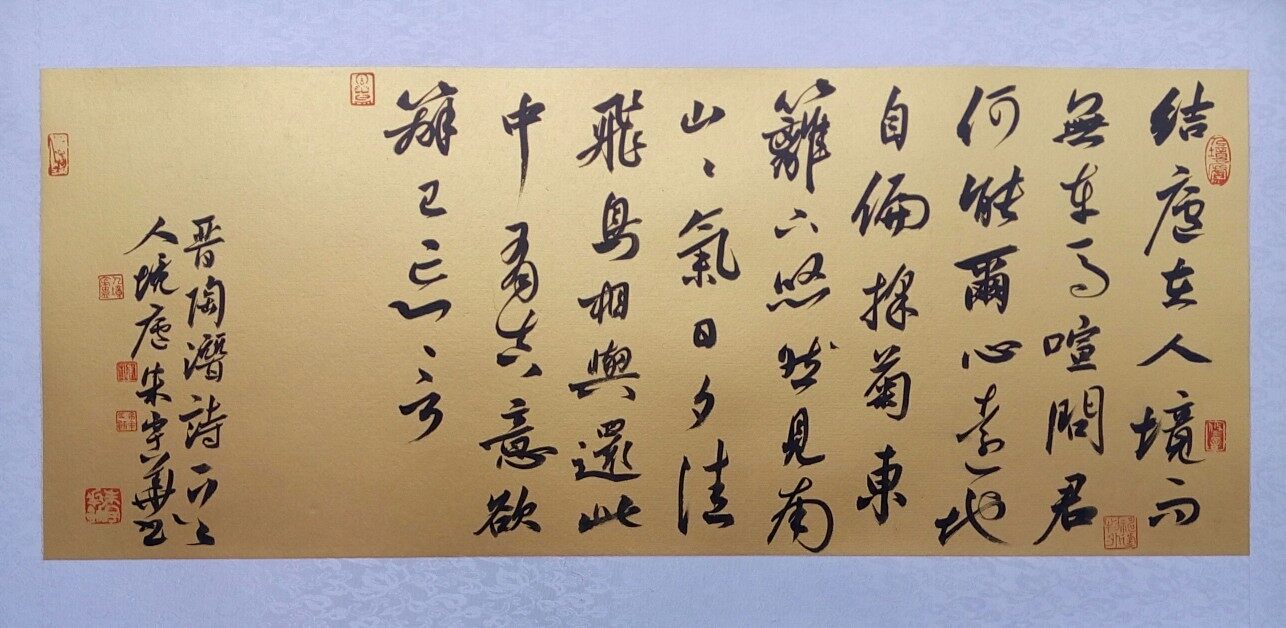 結廬在人境而
無車馬喧問君
何能爾心遠地
自偏採菊東
籬下悠然見南
山〻氣日夕佳
飛鳥相與還此
中有真意欲
辯已忘言
晋陶潛詩
人境廬朱守華書